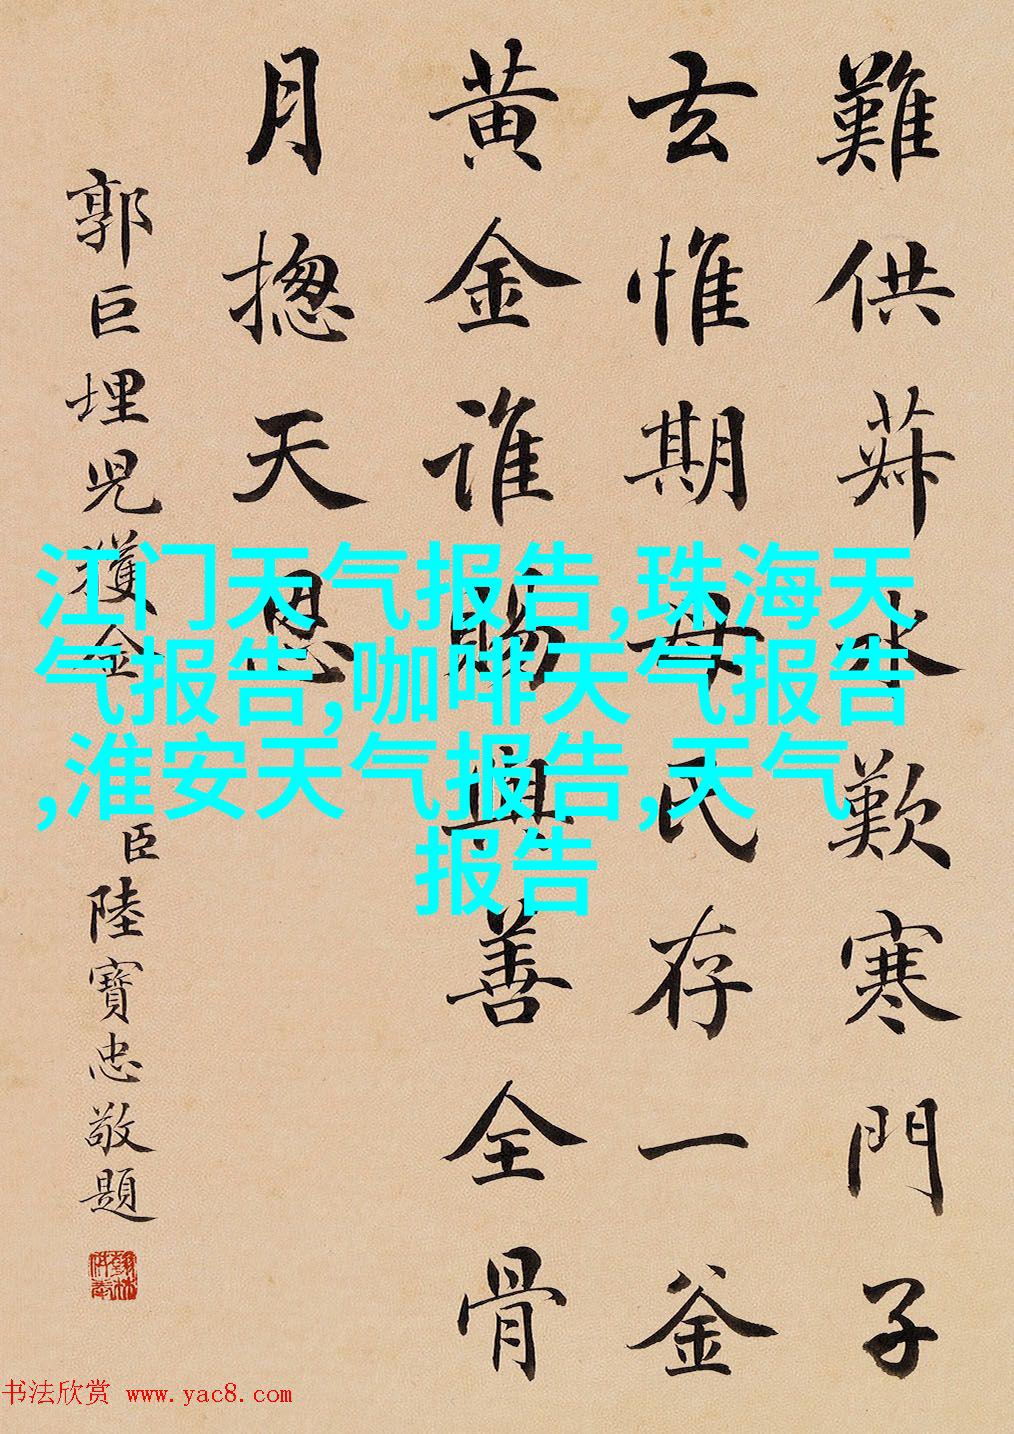 難供菽水歎寒門子
去惟期母氏存一釜
黄金誰賜與善全骨
月揔天恩
郭巨埋児獲金
臣陸寶忠敬題
翰林供奉
江门天气报告,珠海天
气报告,咖啡天气报告
,淮安天气报告,天气
报告
书法欣赏 www.yac8.com